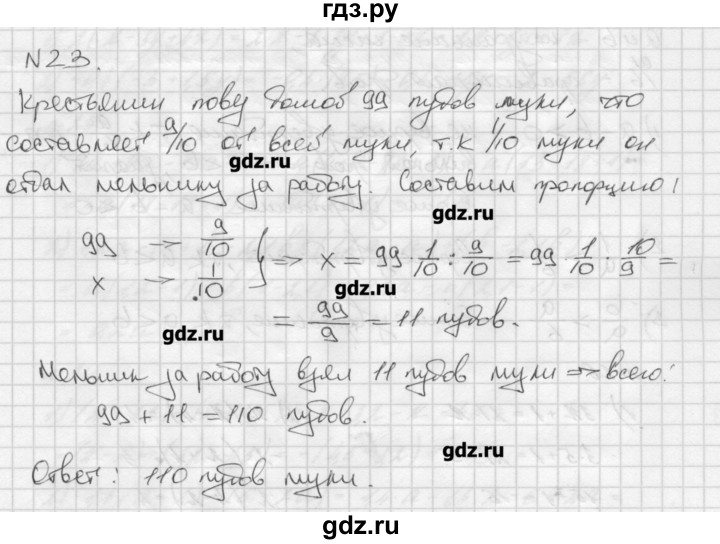 гдз.ру
N23.
Крестьянин пову домов 99 пудов муки, что
составляет 9/10 от всей муки, т.к 1/10 муки он
gdz.ru
отдал мельнику за работу. Составим пропорцию!
gdz.ru
99 → 9/10 } => x = 99 · 1/10 : 9/10 = 99 · 1/10 · 10/9 =
x → 1/10
gdz.ru
= 99/9 = 11 пудов.
gdz.ru
Мельник за работу взял 11 пудов муки => всего:
99 + 11 = 110 пудов.
gdz.ru
Ответ: 110 пудов муки.
gdz.ru